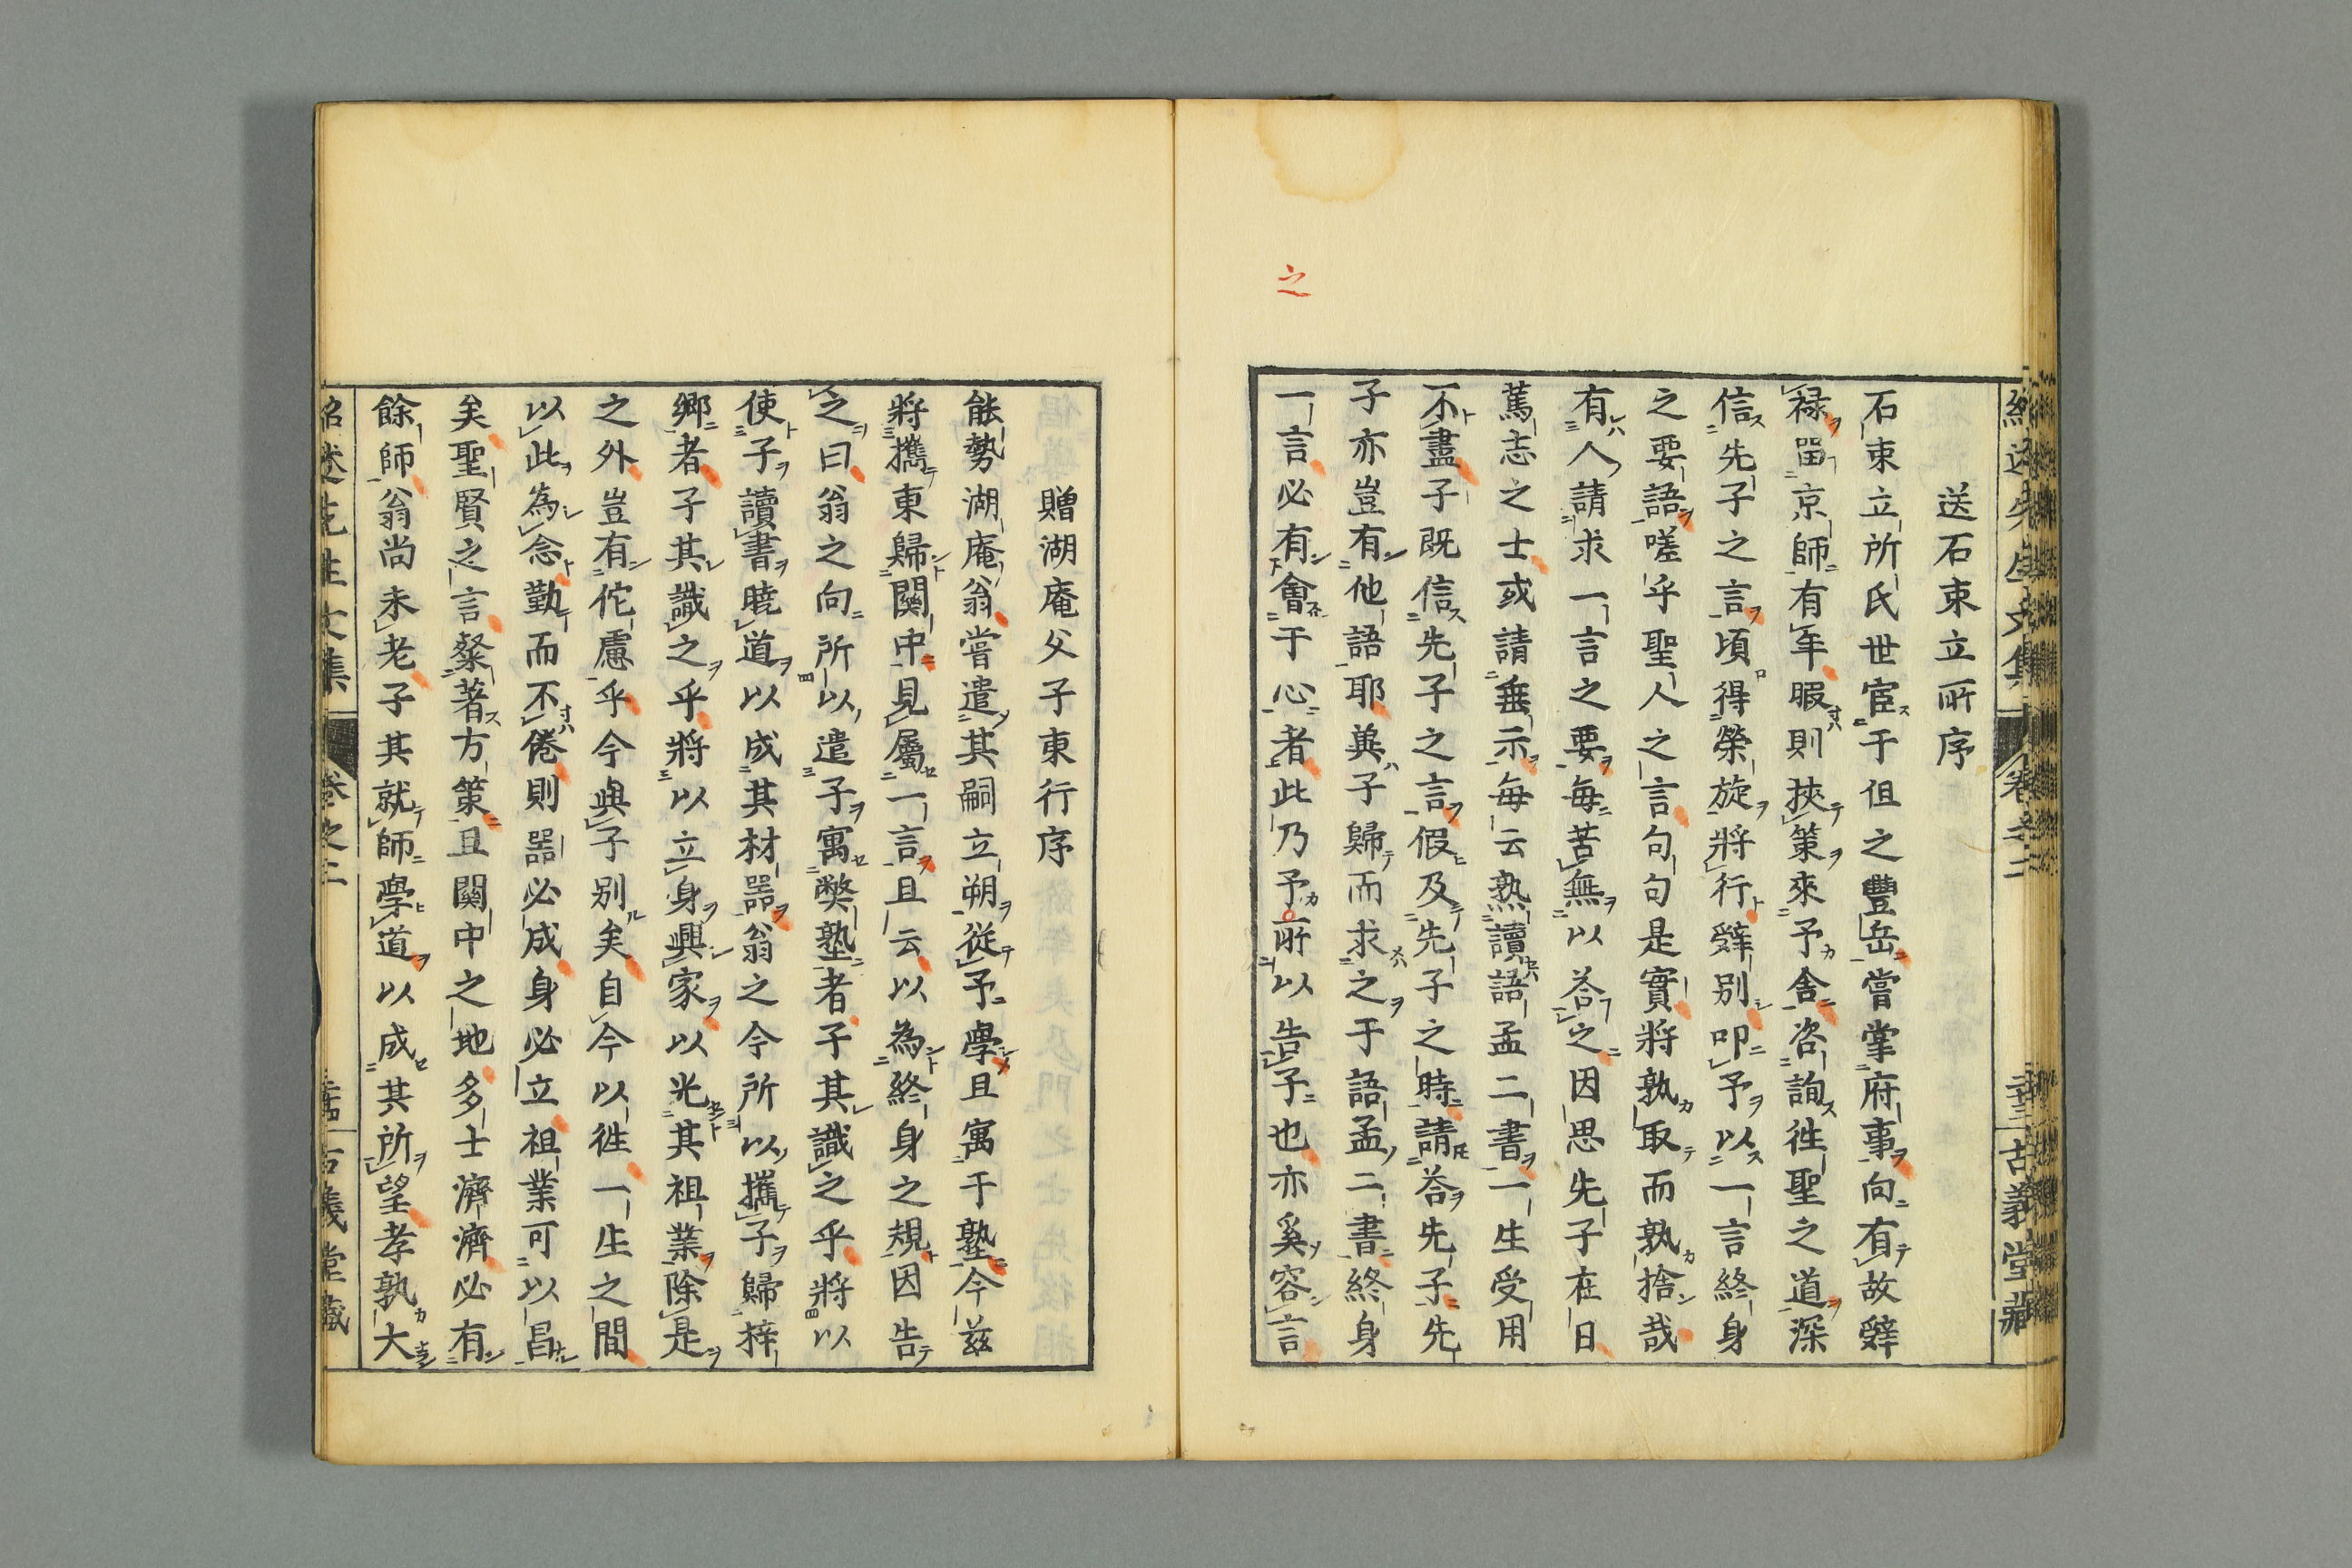 送石束立所序
石束立所氏世宦于但之豐岳嘗掌府事向有故辤
祿留京師有年暇則挾策來予舍咨詢徃聖之道深
信先子之言頃得榮旋將行辤别叩予以一言終身
之要語嗟乎聖人之言句句是實將孰取而孰捨哉
有人請求一言之要每苦無以荅之因思先子在日
篤志之士或請垂示每云熟讀語孟二書一生受用
不盡子既信先子之言假及先子之時請荅先子先
子亦豈有他語耶兾子歸而求之于語孟二書終身
一言必有會于心者此乃予所以告子也亦奚容言
之
卷之二
古義堂藏
贈湖庵父子東行序
能勢湖庵翁嘗遣其嗣立朔從予學且寓于塾今茲
將攜東歸關中見屬一言且云以為終身之規因告
之曰翁之向所以遣子寓弊塾者子其識之乎將以
使子讀書暁道以成其材器翁之今所以攜子歸梓
鄉者子其識之乎將以立身興家以光其祖業除是
之外豈有佗慮乎今與子别矣自今以徃一生之間
以此為念勤而不倦則器必成身必立祖業可以昌
矣聖賢之言粲著方策且關中之地多士濟濟必有
餘師翁尚未老子其就師學道以成其所望孝孰大
紹述先生文集
卷之二
古義堂藏